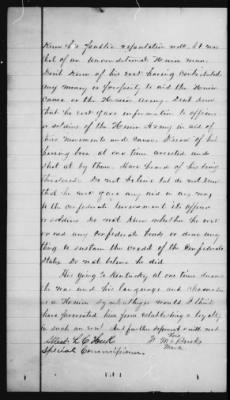 Knew L's public reputation well. It was
that of an unconditional Union man.
Don't know of his ever having contributed
any money or property to aid the Union
cause or the Union Army. Dont know
that he ever gave information to officers
or soldiers of the Union Army in aid of
their movements and cause. I know of his
having been at one time arrested and
shot at by them. Have heard of his being
threatened. Do not believe but do not know
that he ever gave any aid in any way
to the Confederate Government its officers
or soldiers. Do not know whether he ever
owned any Confederate bonds or done any
thing to sustain the credit of the Confederate
States. Do not believe he did.
His going to Kentucky at one time during
the war and his language and character
as a Union sympathizer would I think
have prevented him from establishing a loyalty
to such an end. And further deponent saith not
Attest L C Houk
his
Special Commissioner
mark